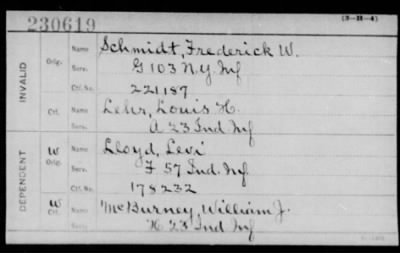 230619
(3-11-4)
INVALID
Orig.
Name Schmidt, Frederick W.
Serv. G 103 N.Y. Inf
Ctf. No. 221187
Ctf.
Name Lehr, Louis H.
Serv. A 23 Ind Inf
DEPENDENT
W
Orig.
Name Lloyd, Levi
Serv. F 57 Ind. Inf.
Ctf. No. 178232
W
Ctf.
Name McBurney, William J.
Serv. H 23 Ind Inf